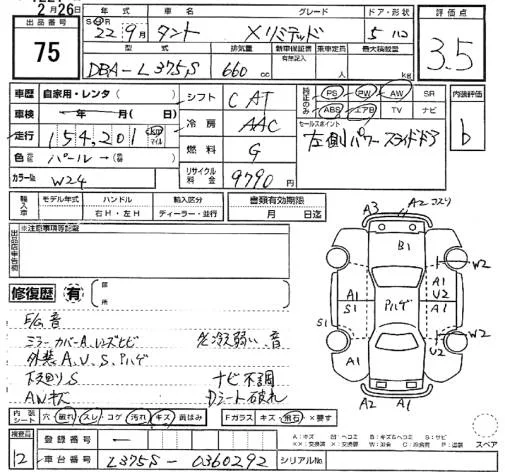 2月26日
出品番号
75
年式
車名
グレード
ドア・形状
評価点
S H 22 9月
タント
Xリミテッド
5 ハコ
3.5
型式
排気量
新車保証書 有無記入
乗車定員
最大積載量
DBA-L375S
660 cc
人
kg
車歴 自家用・レンタ( )
シフト
C AT
純正のみ
PS PW AW SR
内装評価
b
車検 ー年ー月(ー日)
ABS エアB TV ナビ
走行 154,201 km マイル
冷房
AAC
セールスポイント
左側パワースライドドア
色 パール→(替)
燃料
G
カラーNo.
W24
リサイクル料金
9790円
輸入車
モデル年式
ハンドル
輸入区分
書類有効期限
右H・左H
ディーラー・並行
月 日迄
出品店申告欄
※注意事項等記載
修復歴 有
部 所
A3
A2 コスリ
B1
W2
A1
S1
パハゲ
A1
U2
A1
S1
A1
U2
W2
A1
A2
A1
E/G音
ミラーカバーA、レンズヒビ
外装A、U、S、Pハゲ
下廻りS
AWキズ
ナビ不調
Dシート破れ
内装シート 穴 破れ スレ コゲ 汚れ キズ 歯はみ
Fガラス キズ 飛石 ×要す
スペア
検査員
12
登録番号
ー
車台番号
L375S-0360292
シリアルNo.
A:キズ U:ヘコミ B:キズ&ヘコミ S:サビ